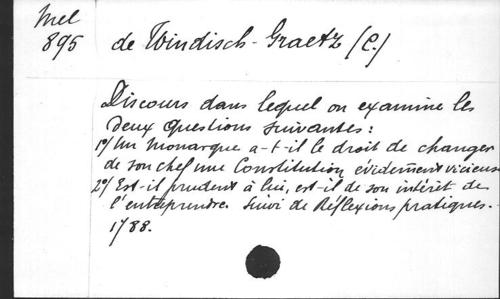 Mel
895
de Windisch-Graetz (C.)
Discours dans lequel on examine les
deux questions suivantes:
1°/ Un Monarque a-t-il le droit de changer
de son chef une Constitution évidemment vicieuse
2°/ Est-il prudent à lui, est-il de son intérêt de
l'entreprendre. Suivi de Réflexions pratiques.
1788.